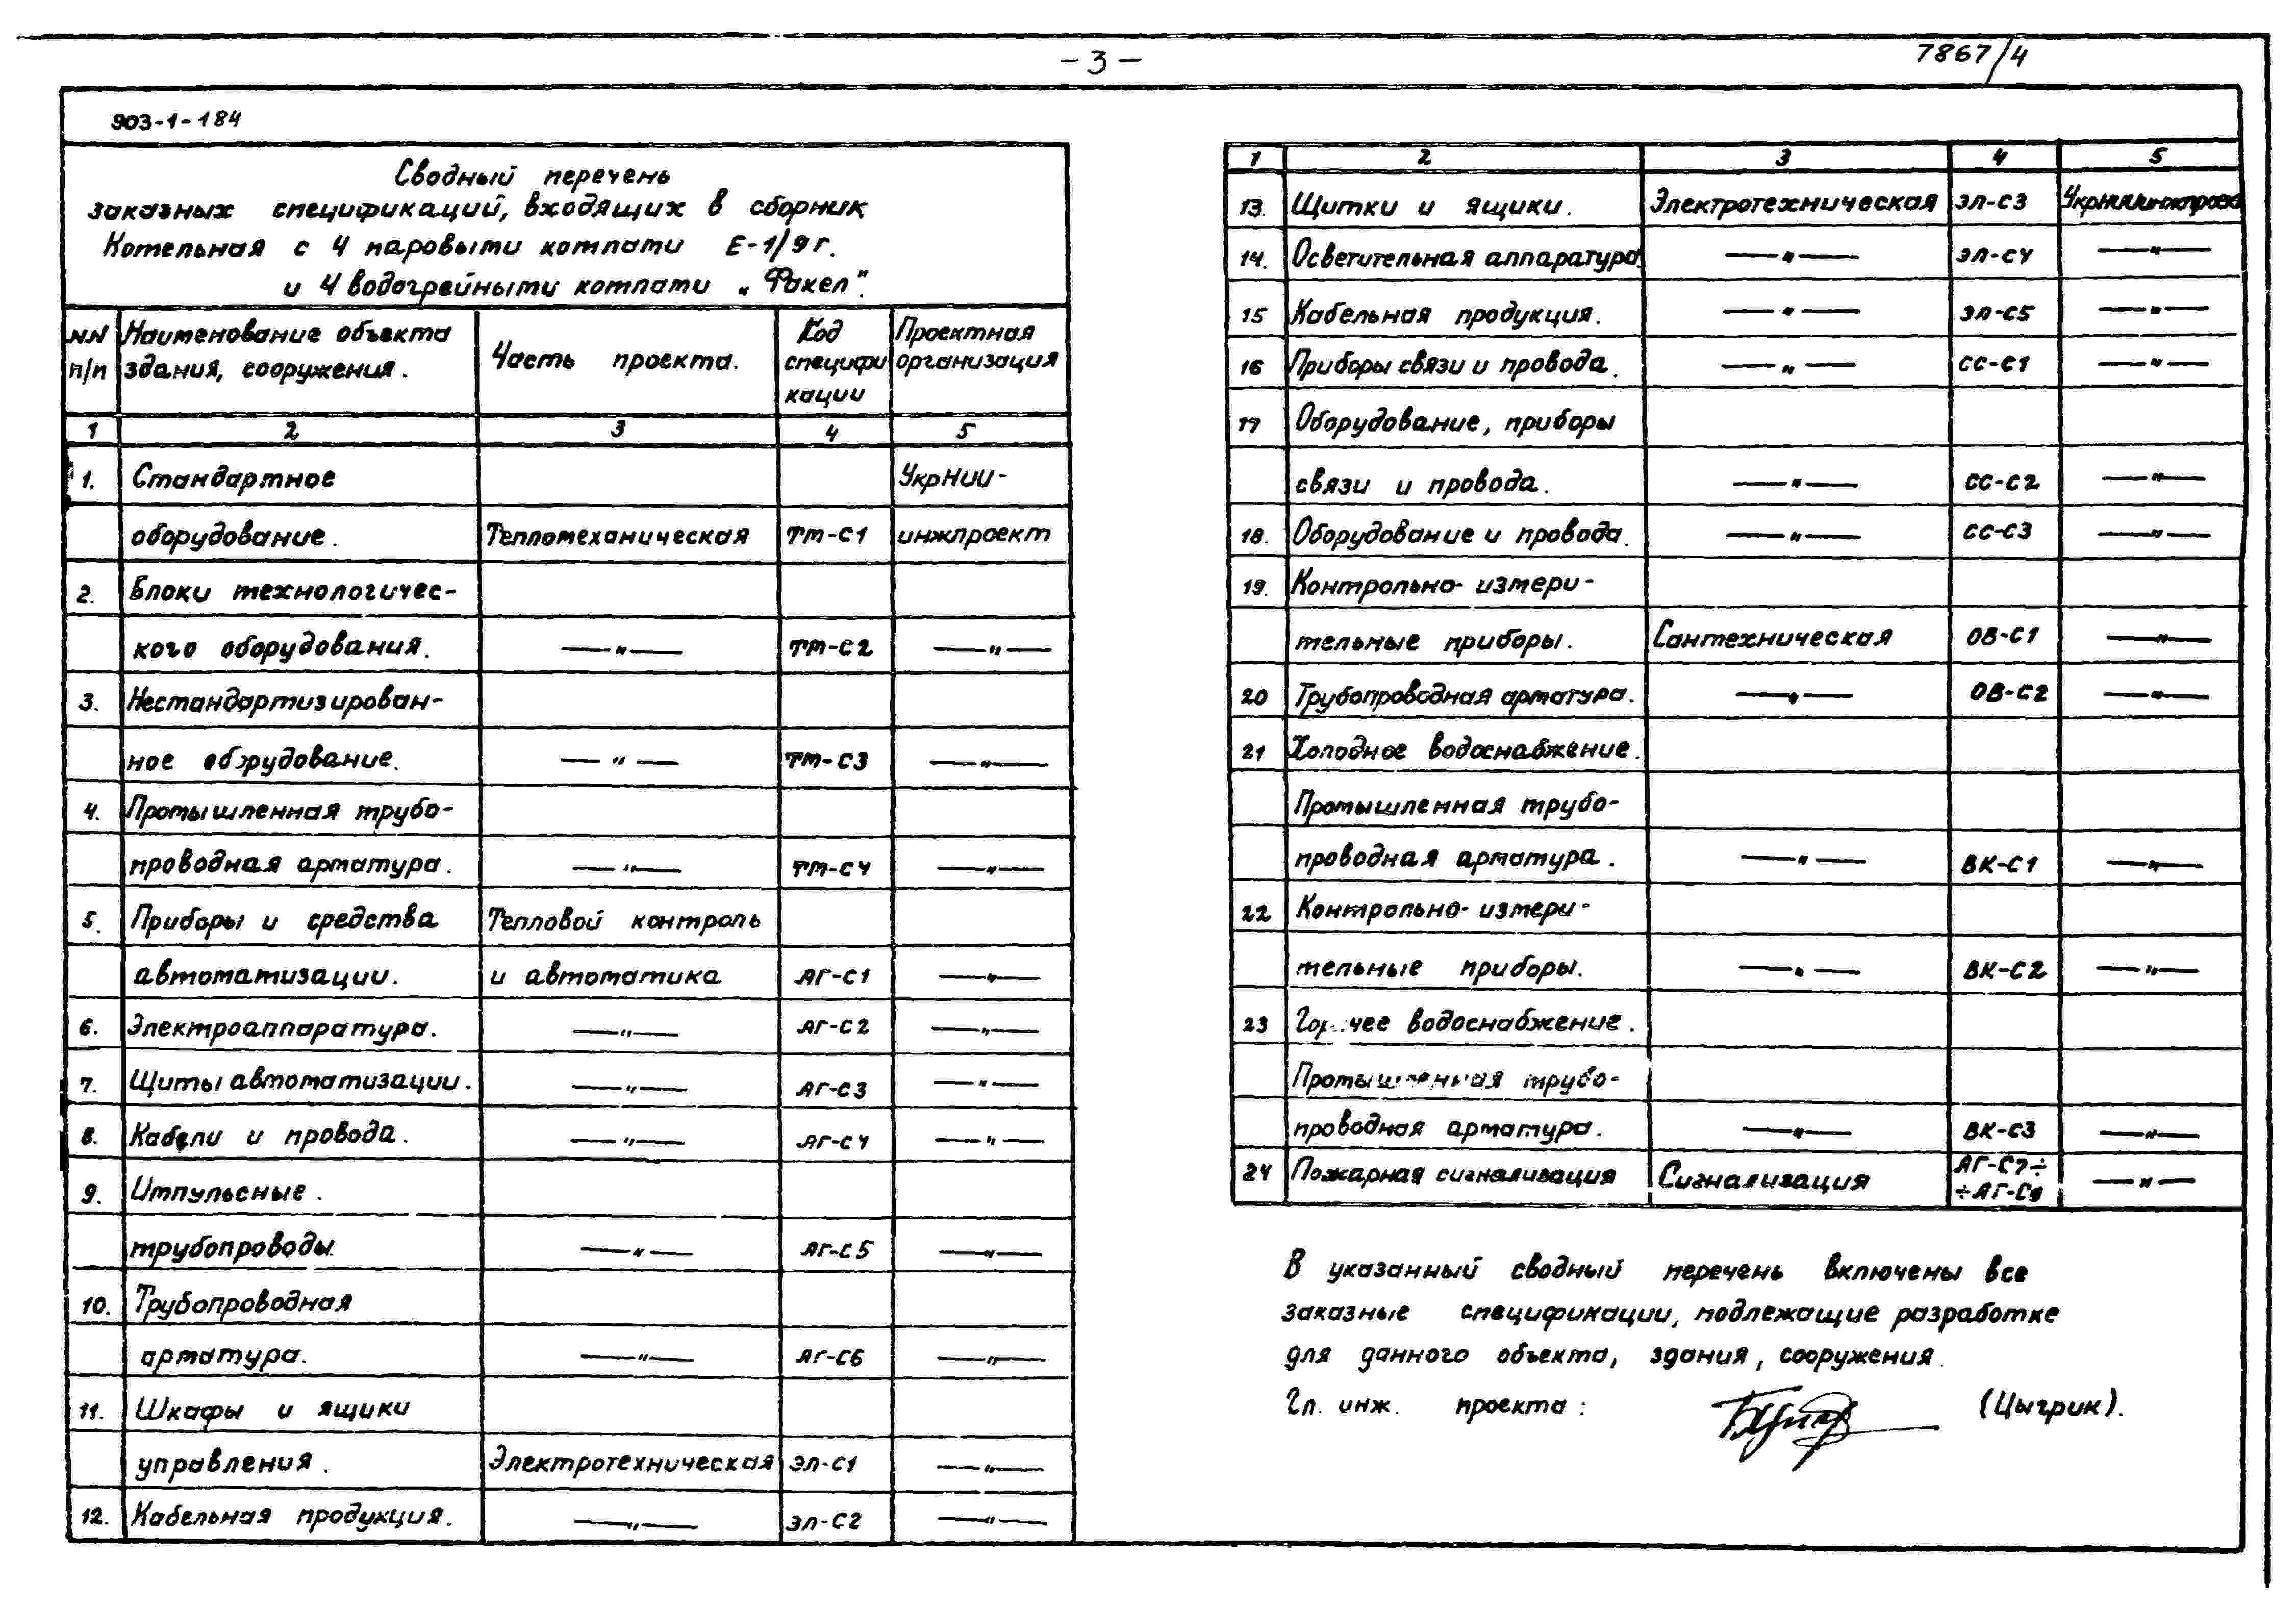 - 3 -
7867/4
903-1-184
Сводный перечень
заказных спецификаций, входящих в сборник
Котельная с 4 паровыми котлами Е-1/9г.
и 4 водогрейными котлами „Факел".
NN Наименование объекта Код Проектная
п/п здания, сооружения. Часть проекта. специфи организация
кации
1 2 3 4 5
1. Стандартное УкрНИИ-
оборудование. Теплотеханическая ТМ-С1 инжпроект
2. Блоки технологичес-
кого оборудования. —"— ТМ-С2 —"—
3. Нестандартизирован-
ное оборудование. —"— ТМ-С3 —"—
4. Промышленная трубо-
проводная арматура. —"— ТМ-С4 —"—
5. Приборы и средства Тепловой контроль
автоматизации. и автоматика АГ-С1 —"—
6. Электроаппаратура. —"— АГ-С2 —"—
7. Щиты автоматизации. —"— АГ-С3 —"—
8. Кабели и провода. —"— АГ-С4 —"—
9. Импульсные.
трубопроводы. —"— АГ-С5 —"—
10. Трубопроводная
арматура. —"— АГ-С6 —"—
11. Шкафы и ящики
управления. Электротехническая ЭЛ-С1 —"—
12. Кабельная продукция. —"— ЭЛ-С2 —"—
1 2 3 4 5
13. Щитки и ящики. Электротехническая ЭЛ-С3 УкрНИИинжпроект
14. Осветительная аппаратура. —"— ЭЛ-С4 —"—
15 Кабельная продукция. —"— ЭЛ-С5 —"—
16 Приборы связи и провода. —"— СС-С1 —"—
17 Оборудование, приборы
связи и провода. —"— СС-С2 —"—
18. Оборудование и провода. —"— СС-С3 —"—
19. Контрольно-измери-
тельные приборы. Сантехническая ОВ-С1 —"—
20 Трубопроводная арматура. —"— ОВ-С2 —"—
21 Холодное водоснабжение.
Промышленная трубо-
проводная арматура. —"— ВК-С1 —"—
22 Контрольно-измери-
тельные приборы. —"— ВК-С2 —"—
23 Горячее водоснабжение.
Промышленная трубо-
проводная арматура. —"— ВК-С3 —"—
24 Пожарная сигнализация Сигнализация АГ-С7÷ —"—
÷АГ-С9
В указанный сводный перечень включены все
заказные спецификации, подлежащие разработке
для данного объекта, здания, сооружения.
Гл. инж. проекта: (Цыгрик).